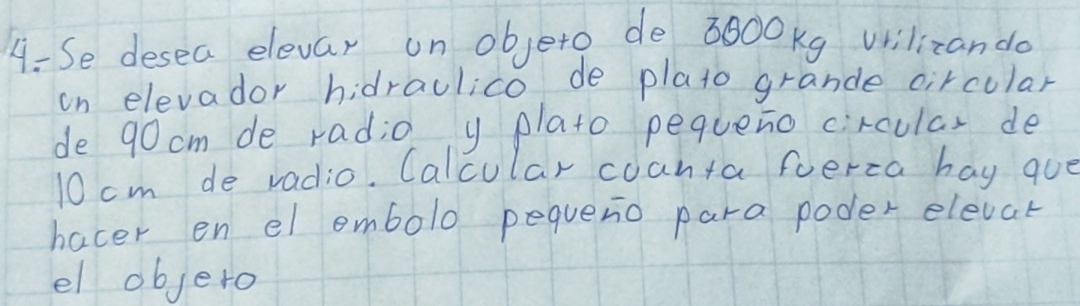 4.- Se desea elevar un objeto de 3800 kg utilizando
un elevador hidraulico de plato grande circular
de 90 cm de radio y plato pequeño circular de
10 cm de radio. Calcular cuanta fuerza hay que
hacer en el embolo pequeño para poder elevar
el objeto